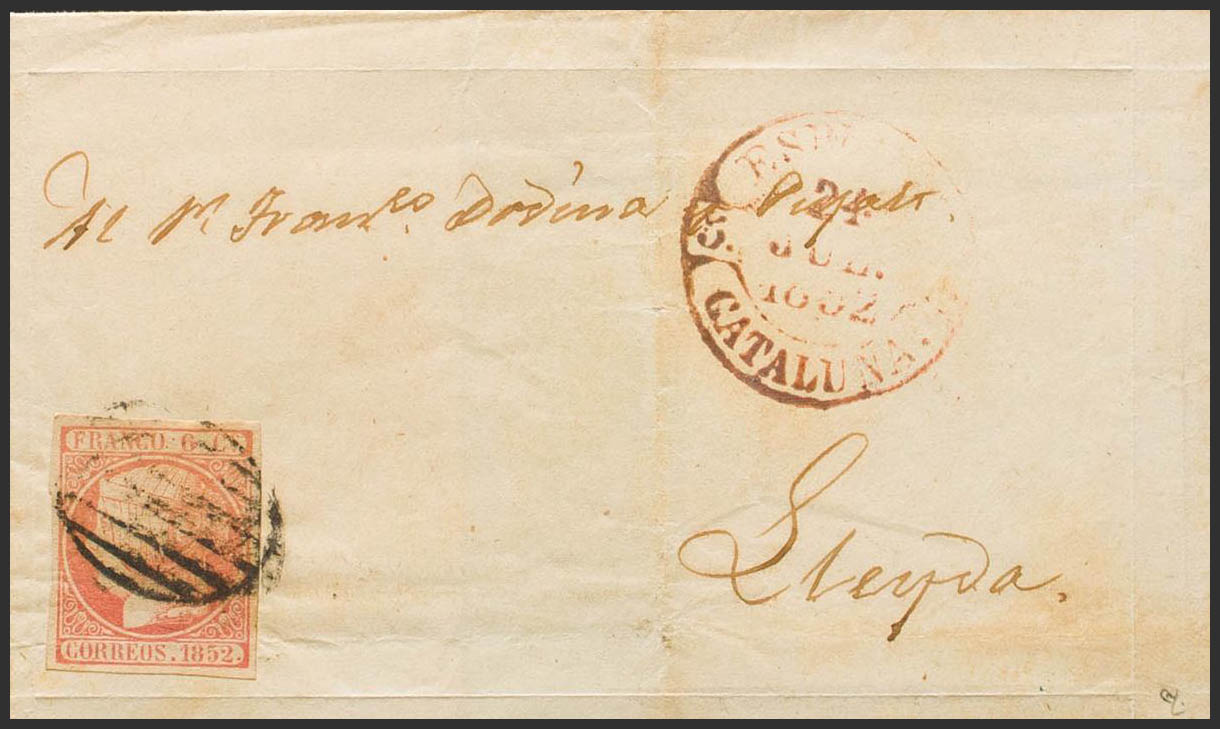 Al Sr. Franco. Dodina y Pujals.
ESP
24
JUL.
1852
5.
CATALUÑA.
FRANCO. 6 Cs
CORREOS. 1852.
Lleyda.